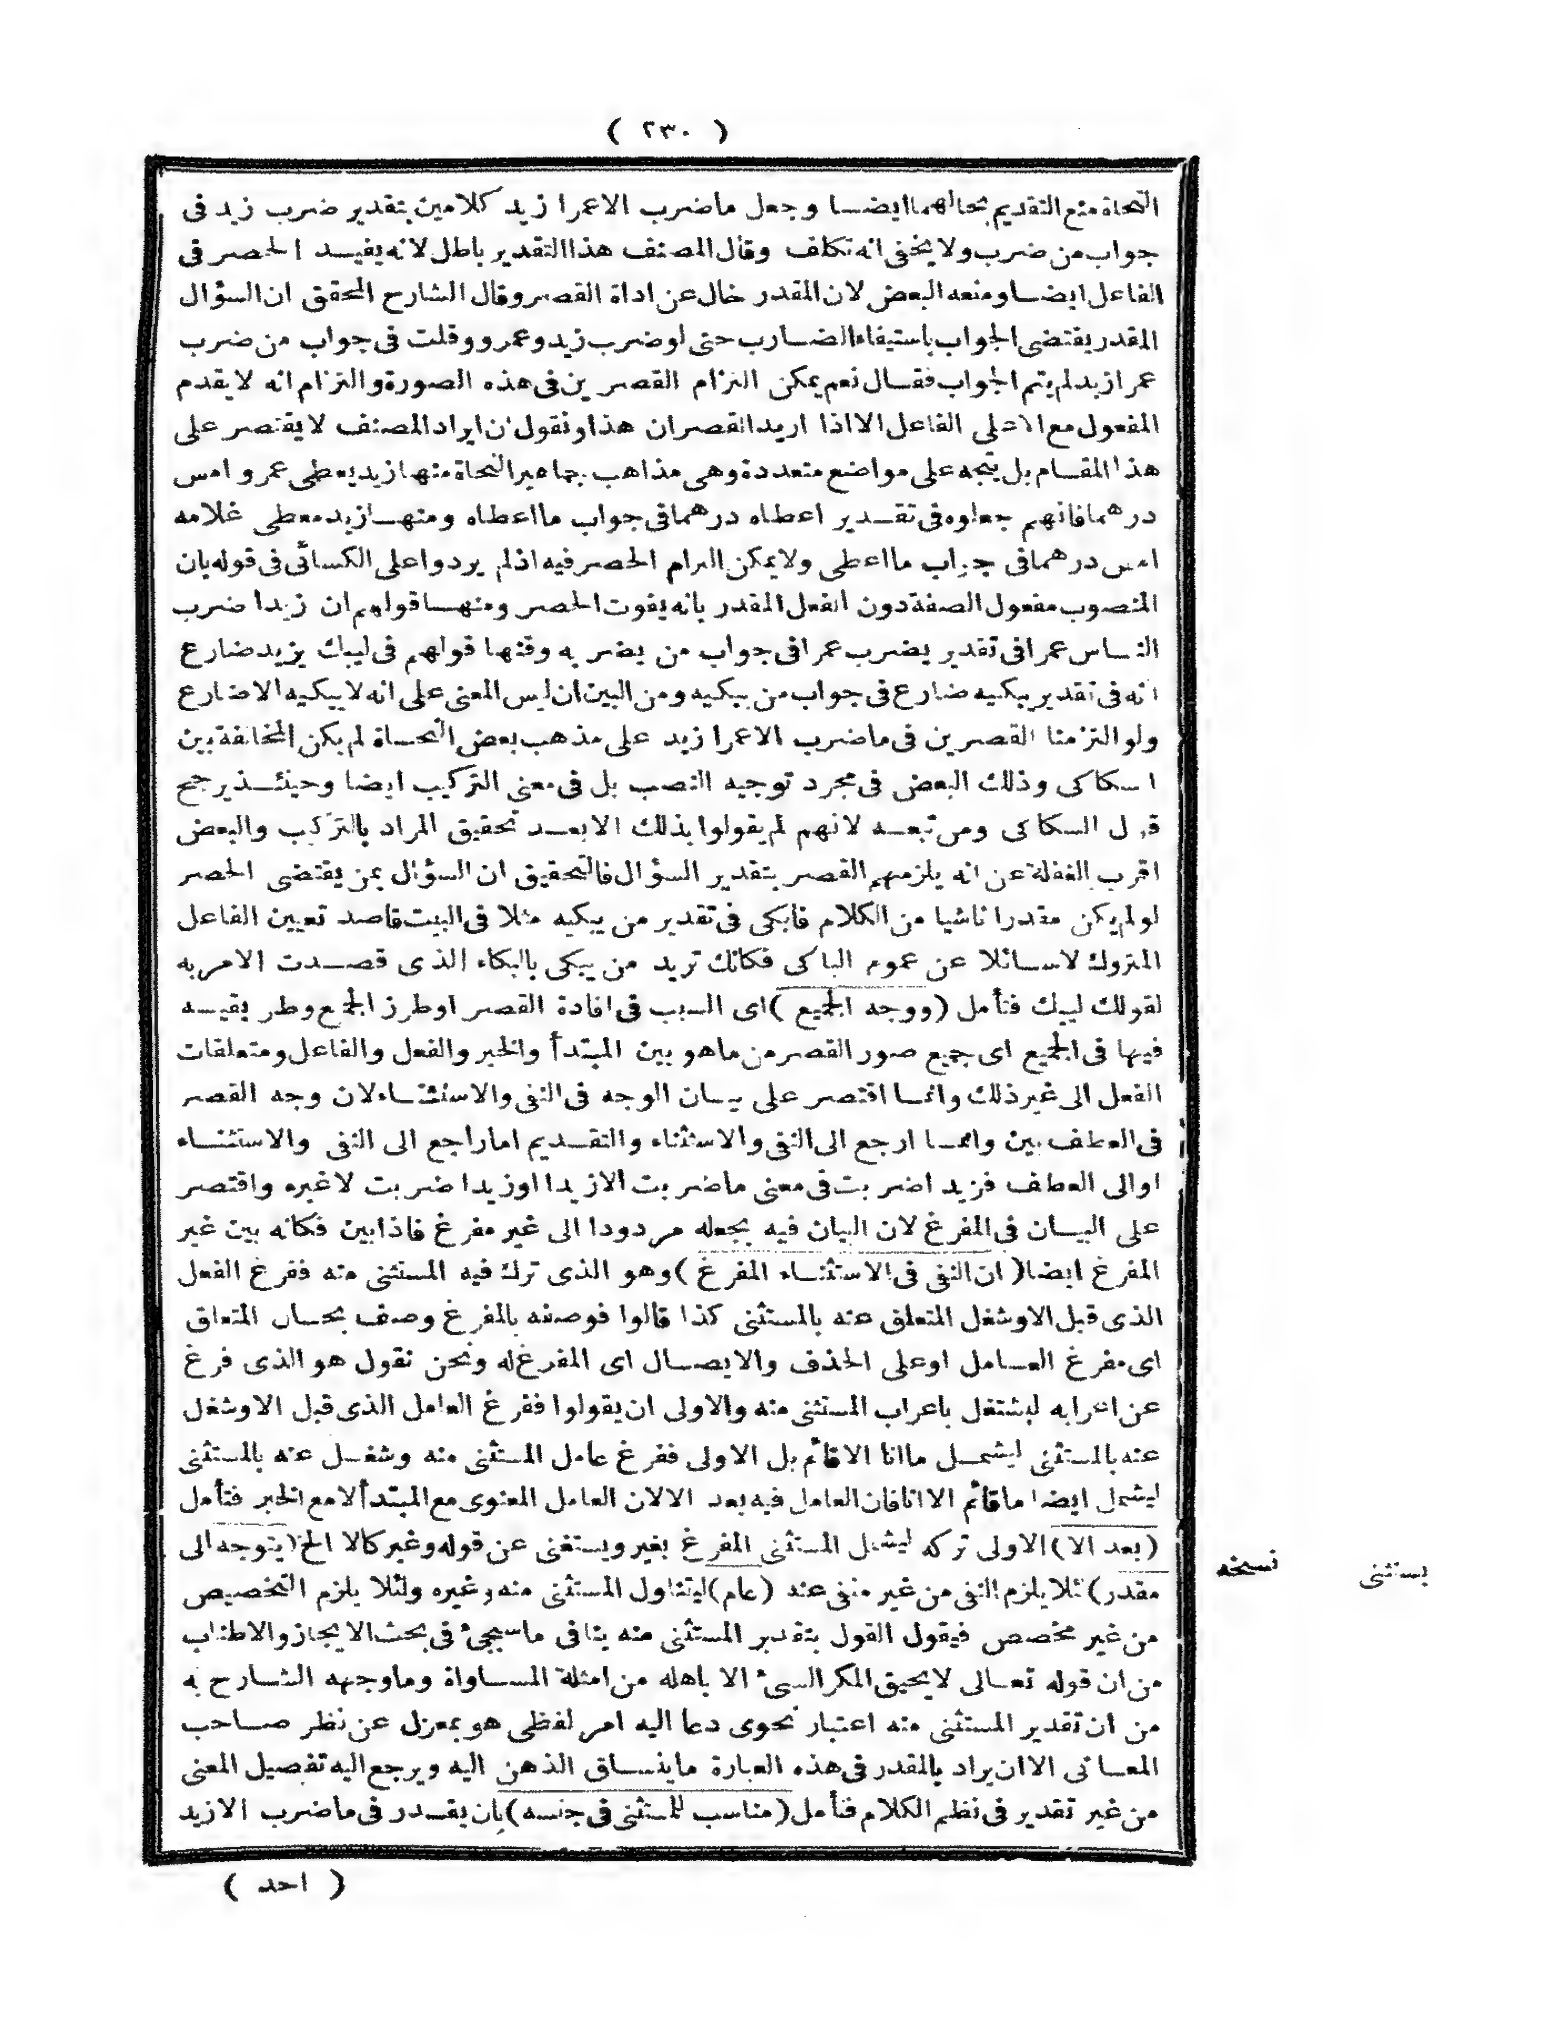 ( ٢٣٠ )
النحاة منع التقديم بحالهما ايضا وجعل ماضرب الاعمرا زيد كلامين بتقدير ضرب زيد فى
جواب من ضرب ولا يخفى انه تكلف وقال المصنف هذا التقدير باطل لانه يفيد الحصر فى
الفاعل ايضا ومنعه البعض لان المقدر خال عن اداة القصر وقال الشارح المحقق ان السؤال
المقدر يقتضى الجواب باستيفاء الضارب حتى لو ضرب زيد وعمرو وقلت فى جواب من ضرب
عمرا زيد لم يتم الجواب فقال نعم يمكن التزام القصرين فى هذه الصورة والتزام انه لا يقدم
المفعول مع الا على الفاعل الا اذا اريد القصران هذا ونقول ان ايراد المصنف لا يقتصر على
هذا المقام بل يتجه على مواضع متعددة وهى مذاهب جماهير النحاة منها زيد يعطى عمرو امس
درهما فانهم جعلوه فى تقدير اعطاه درهما فى جواب ما اعطاه ومنها زيد معطى غلامه
امس درهما فى جواب ما اعطى ولا يمكن الزام الحصر فيه اذ لم يردوا على الكسائى فى قوله بان
المنصوب مفعول الصفة دون الفعل المقدر بانه يفوت الحصر ومنها قولهم ان زيدا ضرب
الناس عمرا فى تقدير يضرب عمرا فى جواب من يضربه وقنها قولهم فى ليبك يزيد ضارع
انه فى تقدير يبكيه ضارع فى جواب من يبكيه ومن البين ان ليس المعنى على انه لا يبكيه الا ضارع
ولو التزمنا القصرين فى ماضرب الاعمرا زيد على مذهب بعض النحاة لم يكن المخالفة بين
السكاكى وذلك البعض فى مجرد توجيه النصب بل فى معنى التركيب ايضا وحينئذ يرجح
قول السكاكى ومن تبعه لانهم لم يقولوا بذلك الا بعد تحقيق المراد بالتركيب والبعض
اقرب الغفلة عن انه يلزمهم القصر بتقدير السؤال فالتحقيق ان السؤال بمن يقتضى الحصر
لو لم يكن مقدرا ناشيا من الكلام فابكى فى تقدير من يبكيه مثلا فى البيت قاصد تعيين الفاعل
المتروك لا سائلا عن عموم الباكى فكانك تريد من يبكى بالبكاء الذى قصدت الامر به
لقولك ليبك فتأمل ( ووجه الجميع ) اى السبب فى افادة القصر او طرز الجمع وطريقه
فيها فى الجميع اى جميع صور القصر من ما هو بين المبتدأ والخبر والفعل والفاعل ومتعلقات
الفعل الى غير ذلك وانما اقتصر على بيان الوجه فى النفى والاستثناء لان وجه القصر
فى العطف بين وانما ارجع الى النفى والاستثناء والتقديم اما راجع الى النفى والاستثناء
او الى العطف فزيدا ضربت فى معنى ماضربت الا زيدا او زيدا ضربت لا غيره واقتصر
على البيان فى المفرغ لان البيان فيه يجعله مردودا الى غير مفرغ فاذا بين فكانه بين غير
المفرغ ايضا ( ان النفى فى الاستثناء المفرغ ) وهو الذى ترك فيه المستثنى منه ففرغ الفعل
الذى قبل الا وشغل المتعلق عنه بالمستثنى كذا قالوا فوصفه بالمفرغ وصف بحال المتعلق
اى مفرغ العامل او على الحذف والايصال اى المفرغ له ونحن نقول هو الذى فرغ
عن اعرابه ليشتغل باعراب المستثنى منه والاولى ان يقولوا ففرغ العامل الذى قبل الا وشغل
عنه بالمستثنى ليشمل ما انا الا قائم بل الاولى ففرغ عامل المستثنى منه وشغل عنه بالمستثنى
ليشمل ايضا ما قائم الا انا فان العامل فيه بعد الا لان العامل المعنوى مع المبتدأ لا مع الخبر فتأمل
( بعد الا ) الاولى تركه ليشمل المستثنى المفرغ بغير ويستغنى عن قوله وغير كالا الخ ( يتوجه الى
مقدر ) لئلا يلزم النفى من غير منفى عنه ( عام ) ليتناول المستثنى منه وغيره ولئلا يلزم التخصيص
من غير مخصص فيقول القول بتقدير المستثنى منه ينافى ما سيجئ فى بحث الايجاز والاطناب
من ان قوله تعالى لا يحيق المكر السئ الا باهله من امثلة المساواة وما وجهه الشارح به
من ان تقدير المستثنى منه اعتبار نحوى دعا اليه امر لفظى هو بمعزل عن نظر صاحب
المعانى الا ان يراد بالمقدر فى هذه العبارة ما ينساق الذهن اليه ويرجع اليه تفصيل المعنى
من غير تقدير فى نظم الكلام فتأمل ( مناسب للمستثنى فى جنسه ) بان يقدر فى ماضرب الا زيد
( احد )
يستثنى نسخه